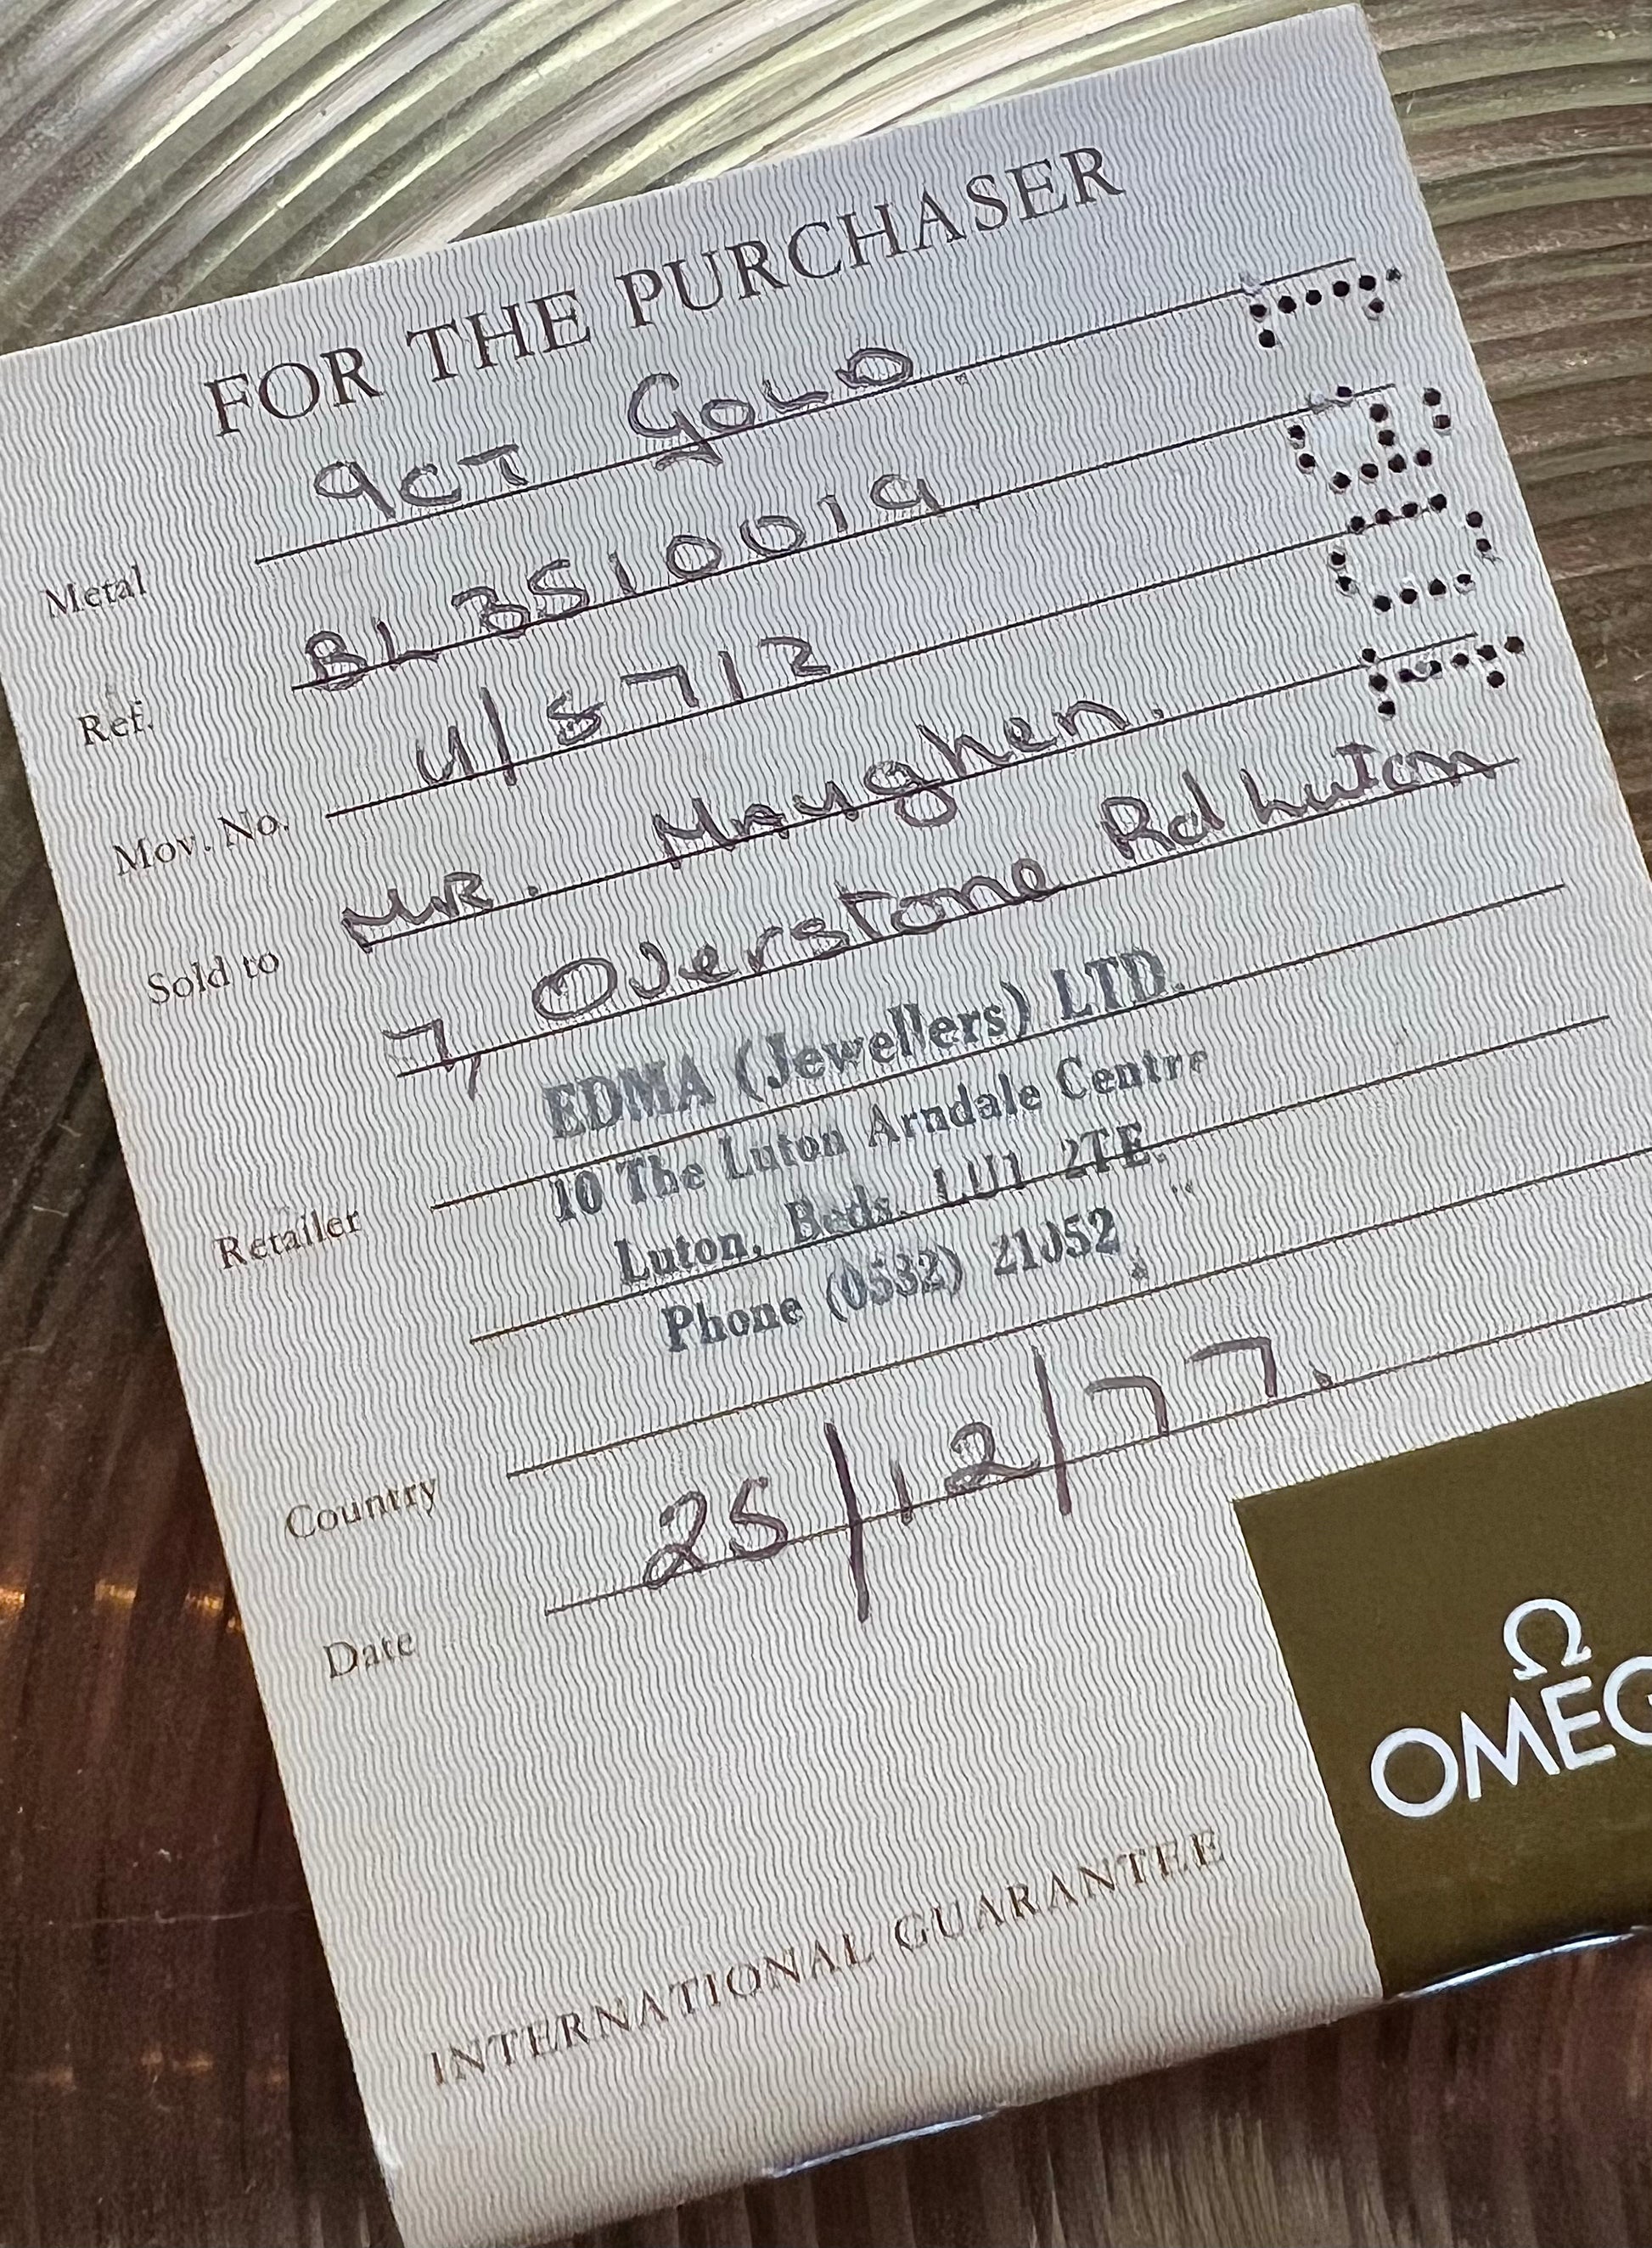 FOR THE PURCHASER
Metal 9CT GOLD
Ref. BL 3510019
Mov. No. U/S712
Sold to MR. Maughen.
7, Overstone Rd Luton
EDMA (Jewellers) LTD.
10 The Luton Arndale Centre
Retailer Luton, Beds. LU1 2TE.
Phone (0582) 21052
Country
Date 25/12/77.
Ω
OMEG
INTERNATIONAL GUARANTEE